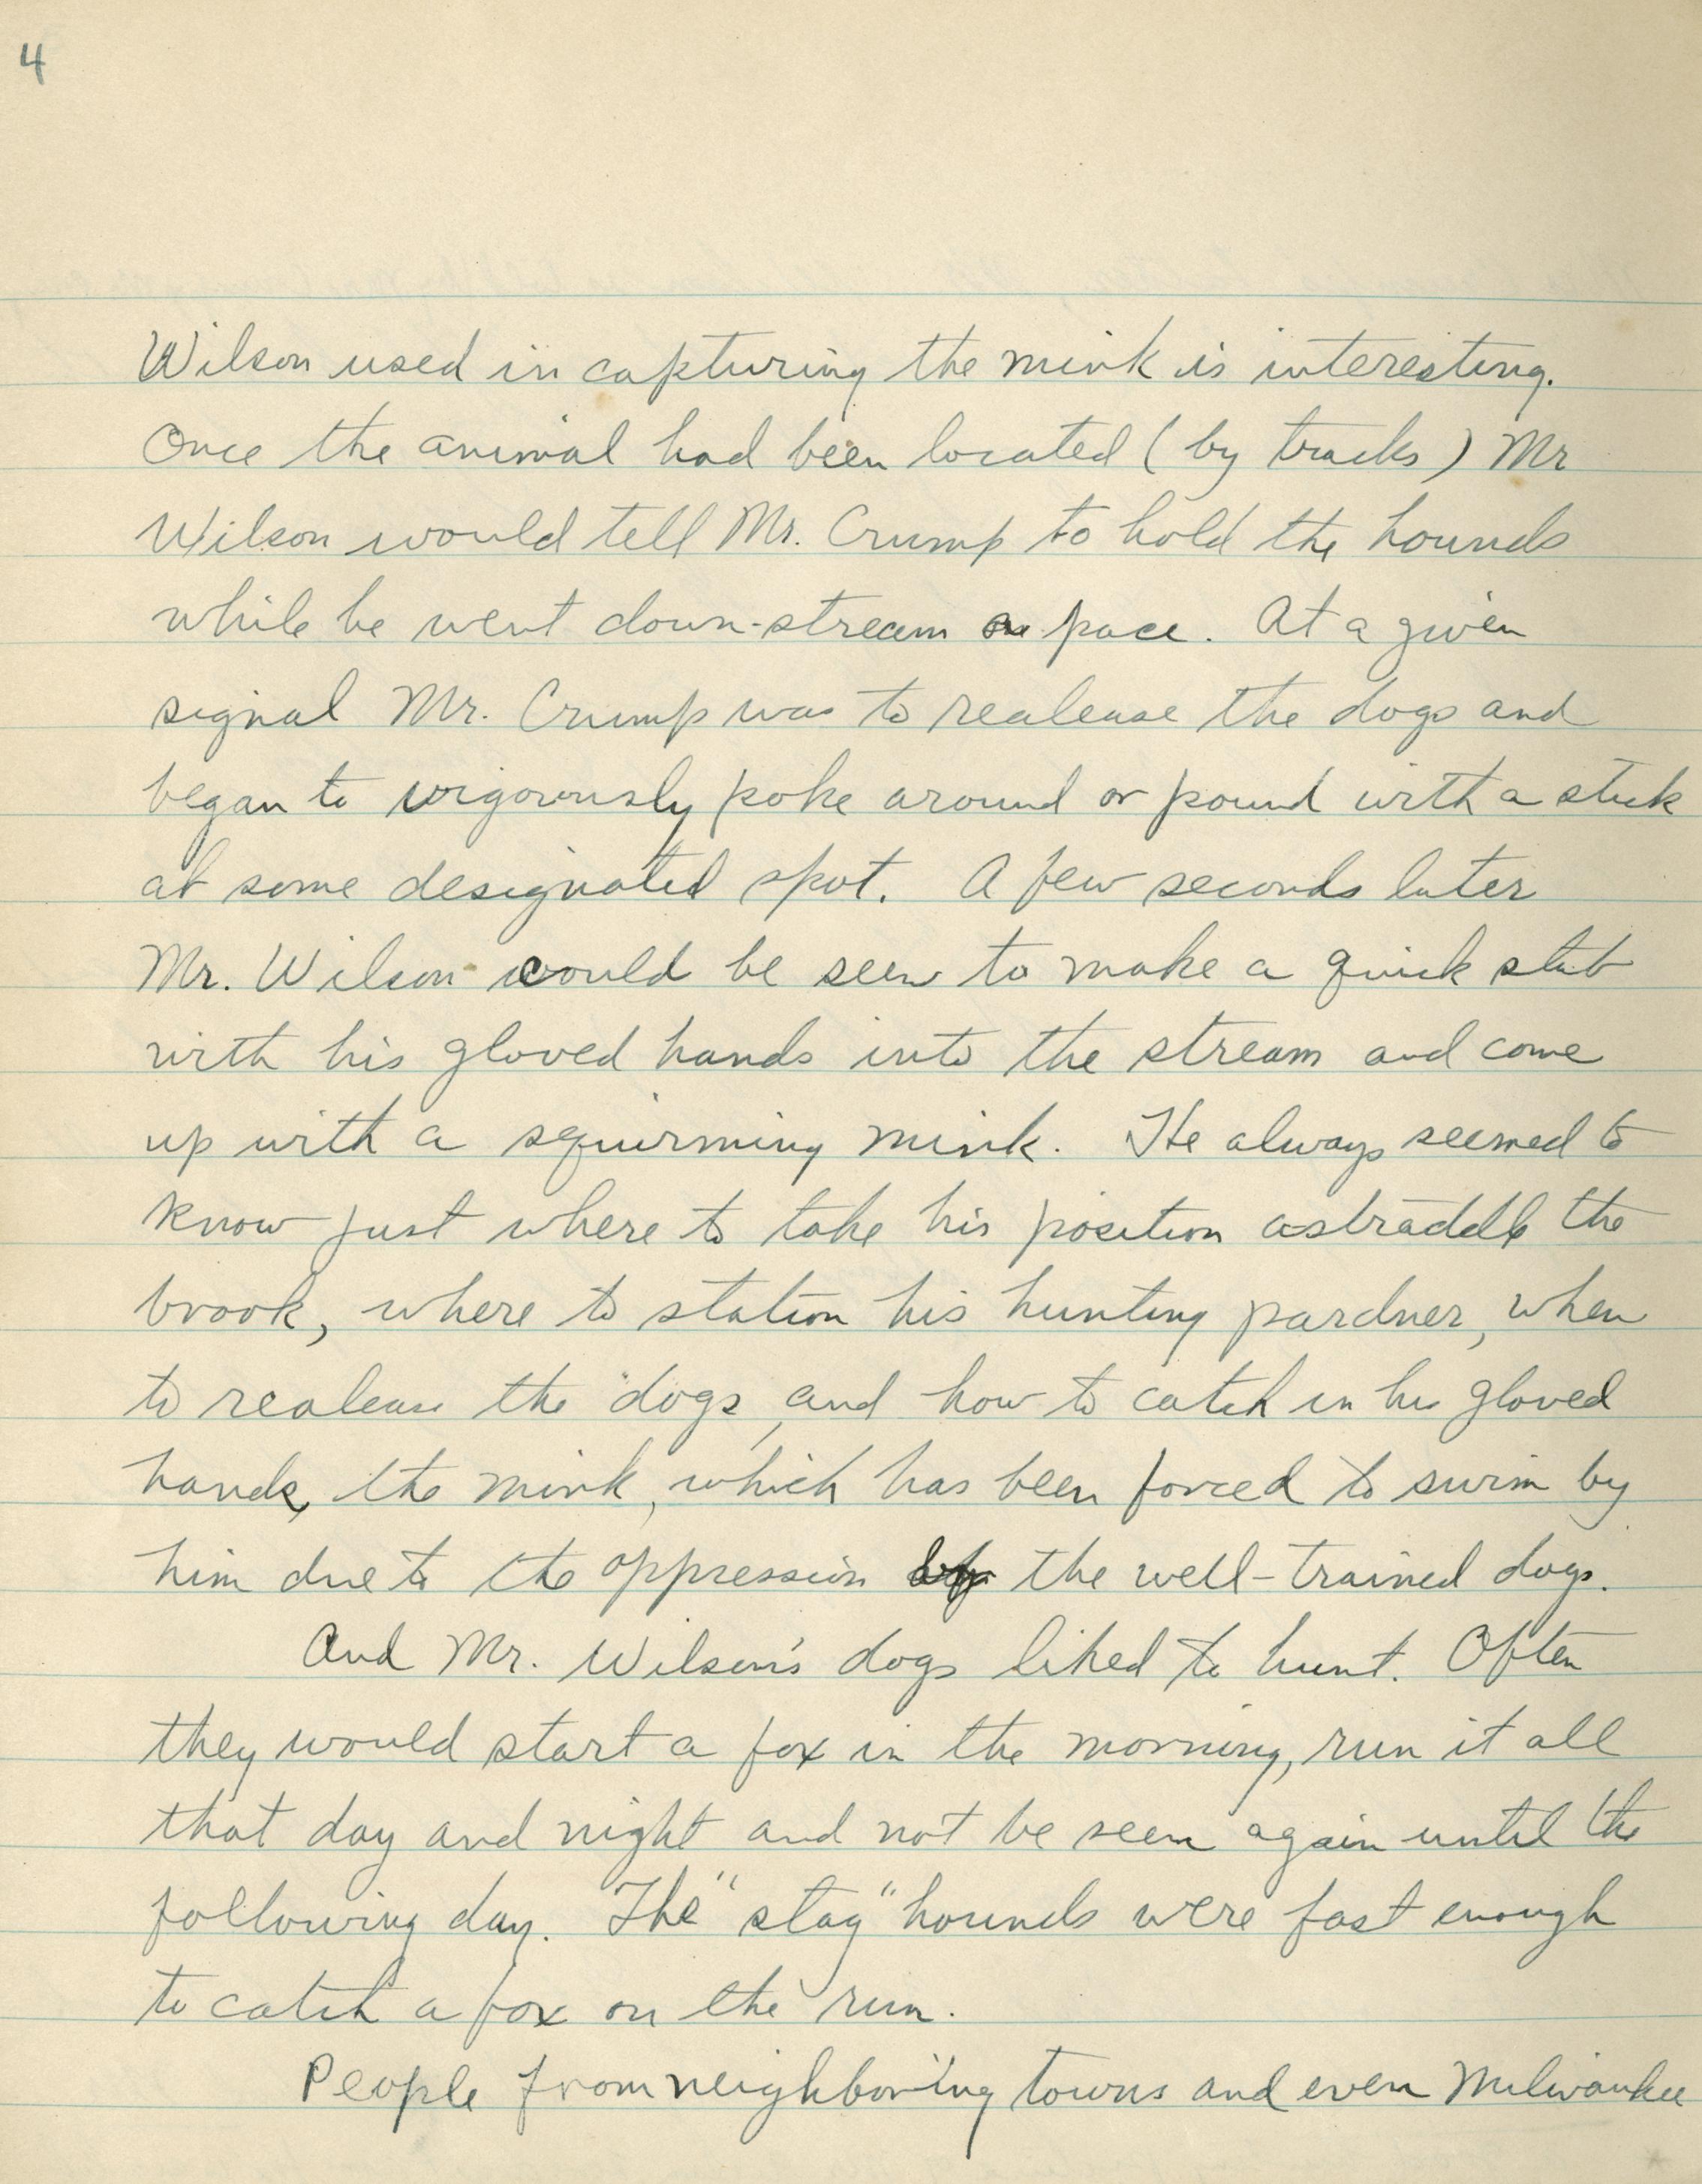 4
Wilson used in capturing the mink is interesting.
Once the animal had been located (by tracks) Mr
Wilson would tell Mr. Crump to hold the hounds
while he went down-stream a pace. At a given
signal Mr. Crump was to realease the dogs and
began to vigorously poke around or pound with a stick
at some designated spot. A few seconds later
Mr. Wilson could be seen to make a quick stab
with his gloved hands into the stream and come
up with a squirming mink. He always seemed to
know just where to take his position astraddle the
brook, where to station his hunting pardner, when
to realease the dogs, and how to catch in his gloved
hands, the mink, which has been forced to swim by
him due to the oppression of the well-trained dogs.
And Mr. Wilson's dogs liked to hunt. Often
they would start a fox in the morning, run it all
that day and night and not be seen again until the
following day. The "stag" hounds were fast enough
to catch a fox on the run.
People from neighboring towns and even Milwaukee